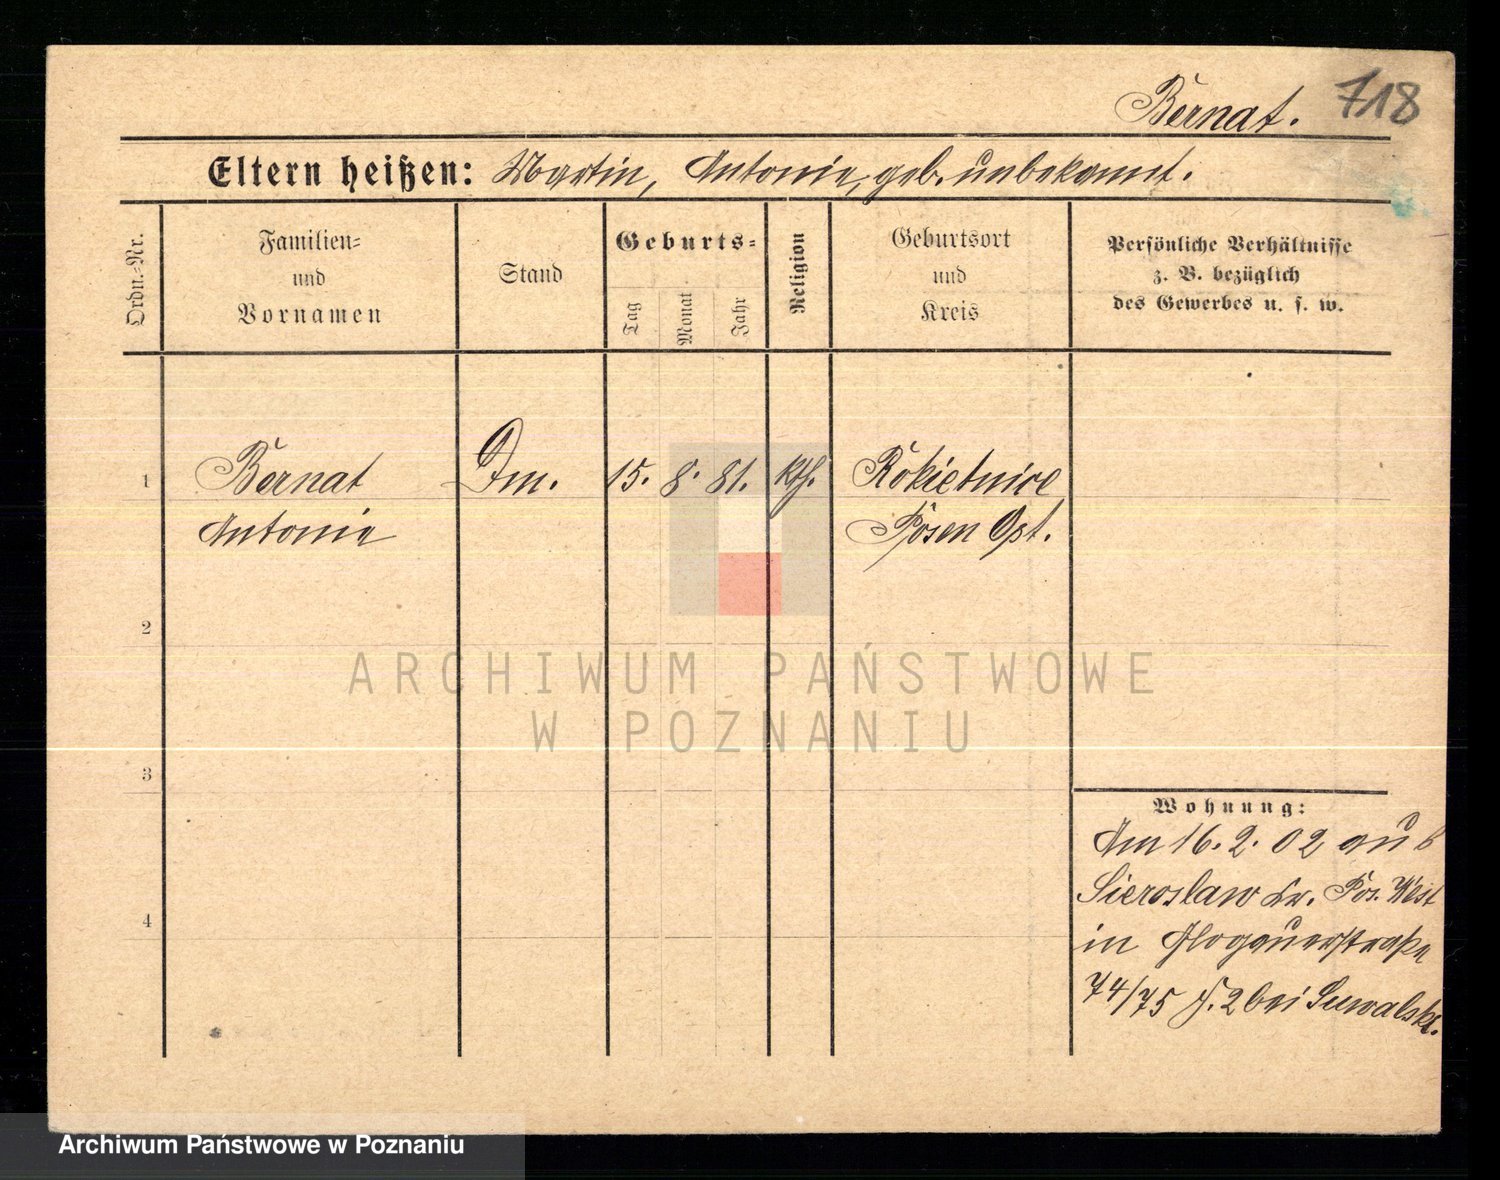 Bernat. 718
Eltern heißen: Martin, Antonie, geb. unbekannt.
Ordn.-Nr.
Familien-
und
Vornamen
Stand
Geburts-
Tag
Monat
Jahr
Religion
Geburtsort
und
Kreis
Persönliche Verhältnisse
z. B. bezüglich
des Gewerbes u. s. w.
1 Bernat Dm. 15. 8. 81. kth. Rokietnice
Antonie Posen Ost.
2
3
4
Wohnung:
Am 16. 2. 02 aus
Sieroslaw Kr. Pos. West
in Glogauerstraße
74/75 H. 2 bei Suwalski.
ARCHIWUM PAŃSTWOWE
W POZNANIU
Archiwum Państwowe w Poznaniu